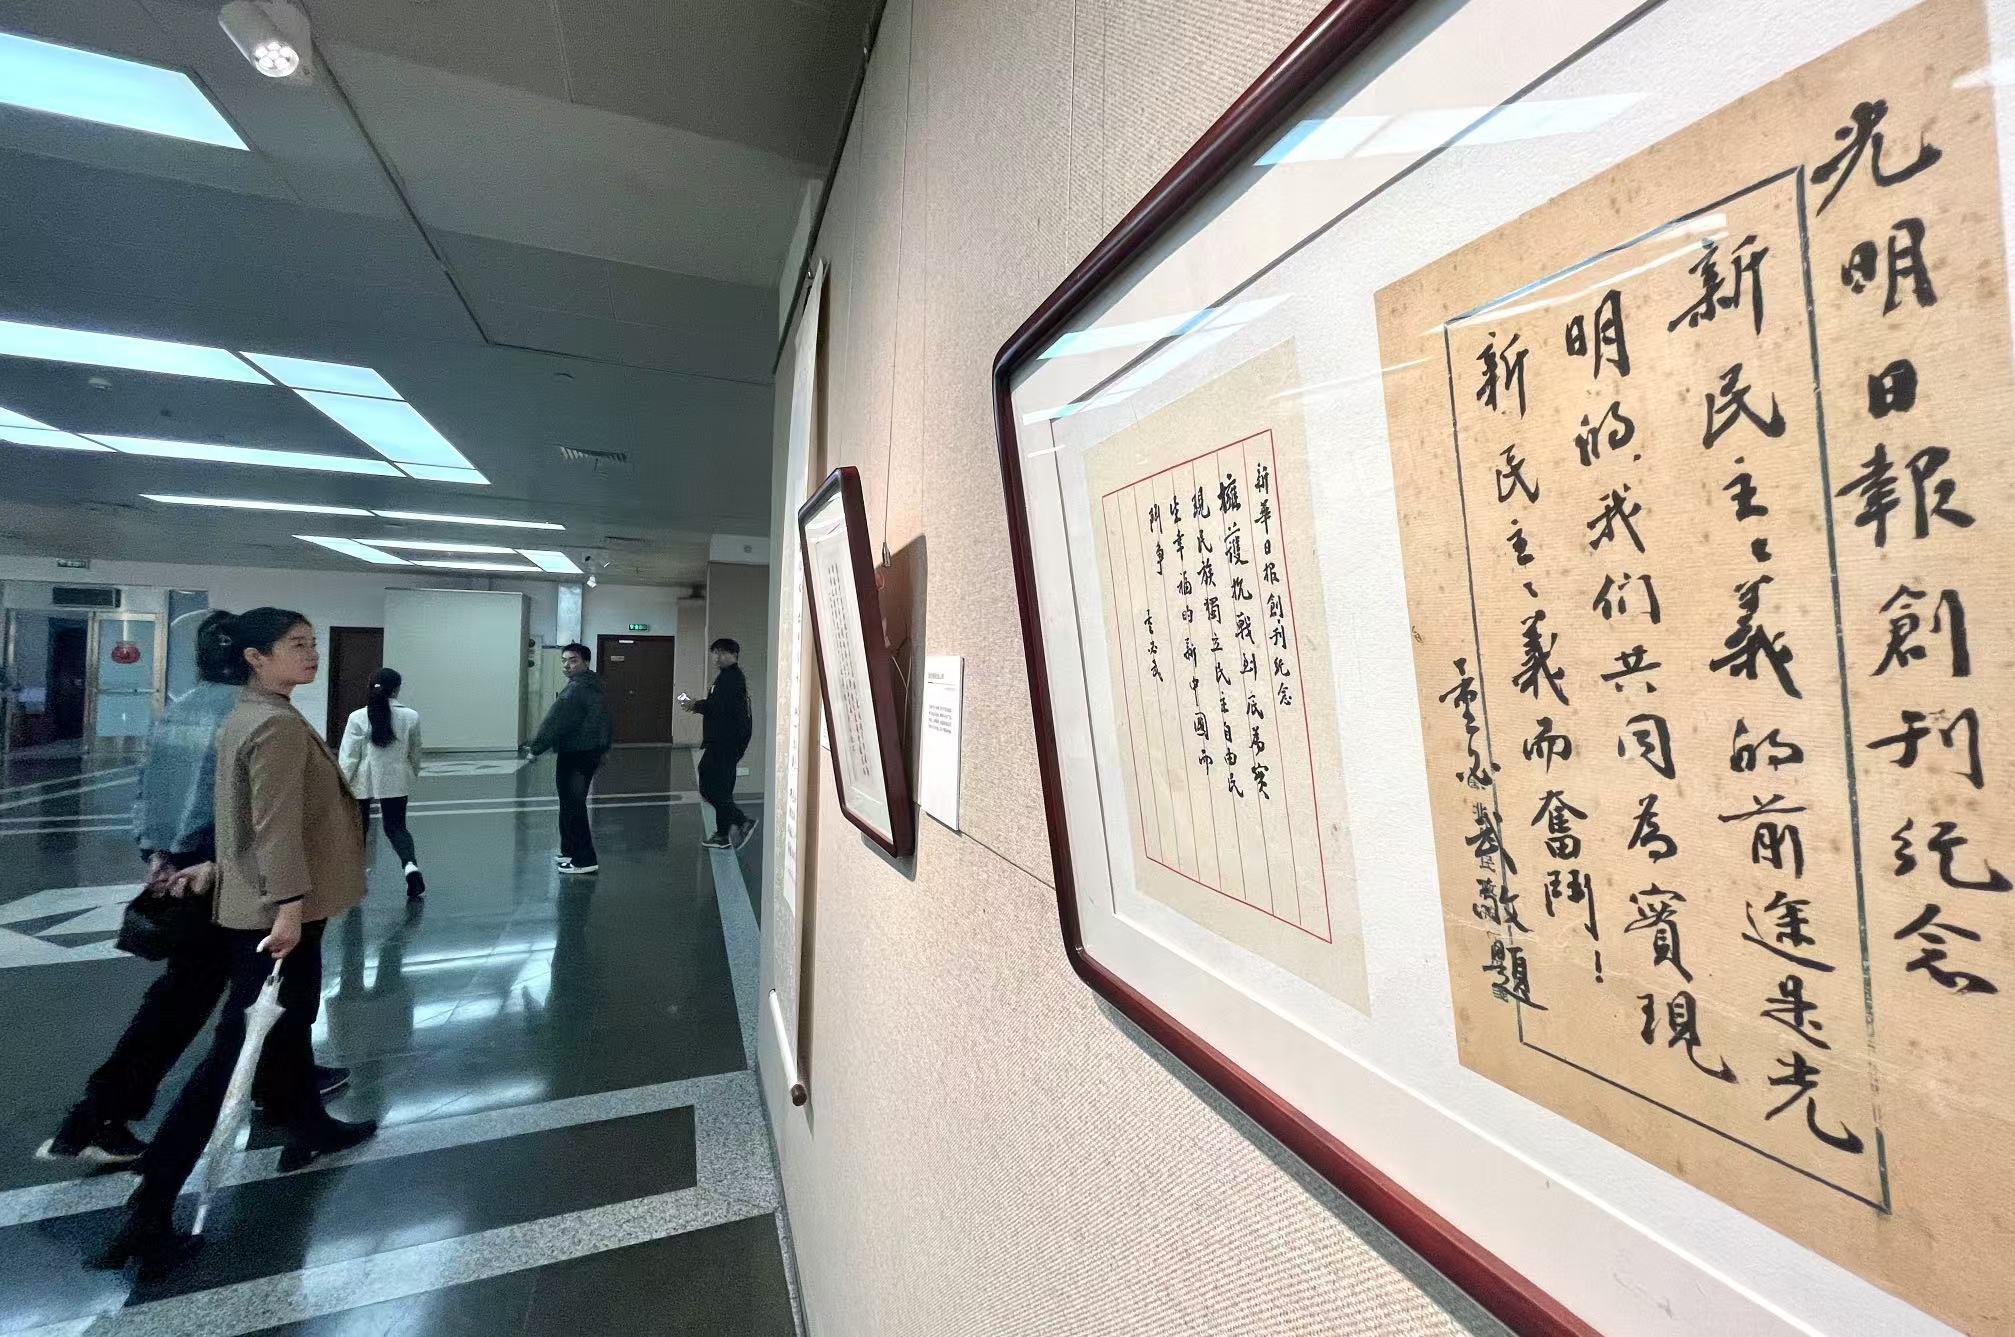 光明日報創刊纪念
新民主〻義的前途是光
明的,我们共同為實現
新民主〻義而奮鬥!
董必武敬題
新華日报創刊纪念
擁護抗戰到底為實
現民族獨立民主自由民
生幸福的新中國而
鬥争
董必武